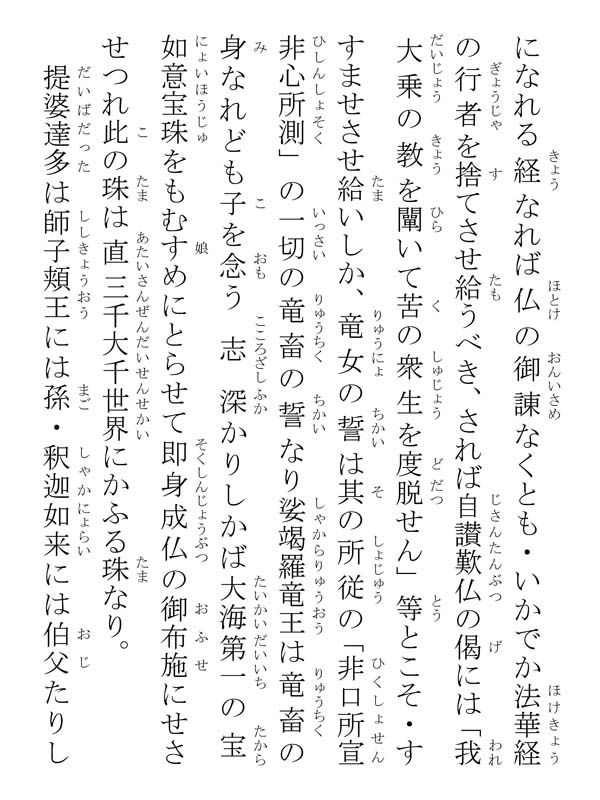 になれる経なれば仏の御諌なくとも・いかでか法華経
の行者を捨てさせ給うべき、されば自讃歎仏の偈には「我
大乗の教を闡いて苦の衆生を度脱せん」等とこそ・す
すませさせ給いしか、竜女の誓は其の所従の「非口所宣
非心所測」の一切の竜畜の誓なり娑竭羅竜王は竜畜の
身なれども子を念う志深かりしかば大海第一の宝
如意宝珠をもむすめにとらせて即身成仏の御布施にせさ
せつれ此の珠は直三千大千世界にかふる珠なり。
提婆達多は師子頬王には孫・釈迦如来には伯父たりし